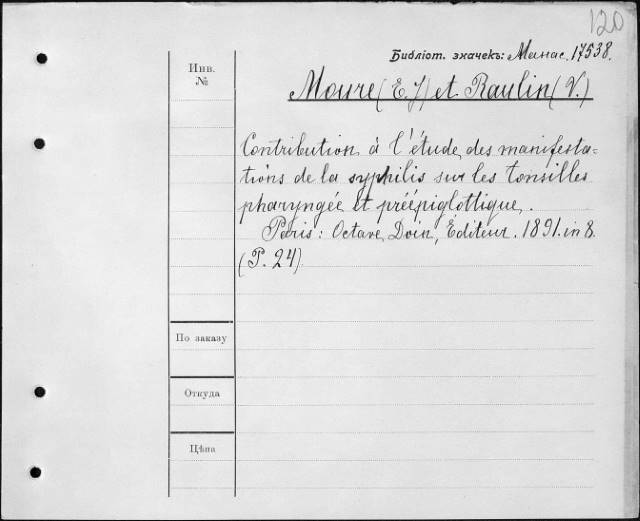 120
Библіот. значекъ: Манас. 17538.
Инв.
№
Moure (E. J) et Raulin (V.)
Contribution à l'étude des manifesta=
tions de la syphilis sur les tonsilles
pharyngée et préépiglottique.
Paris: Octave Doin, Éditeur. 1891. in 8.
(P. 24)
По заказу
Откуда
Цѣна